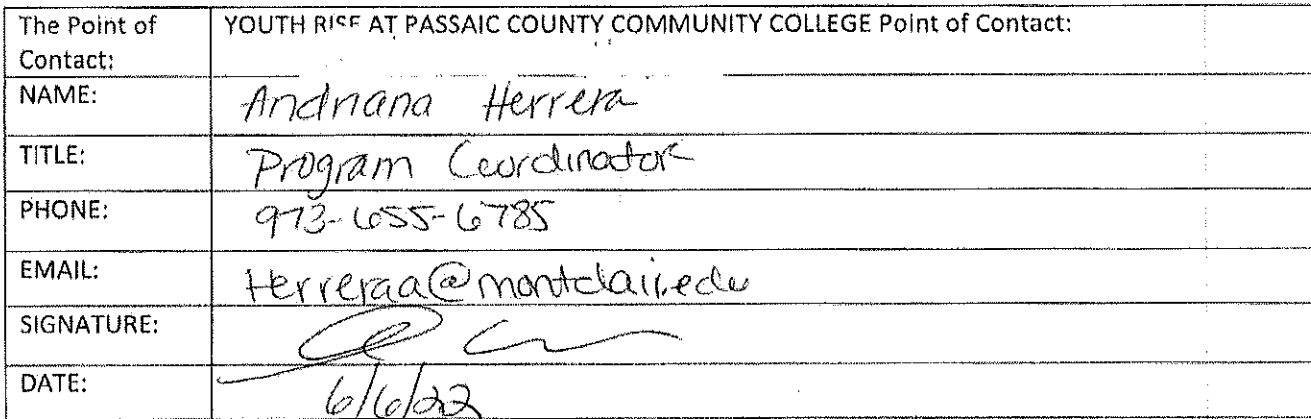 The Point of Contact: YOUTH RISE AT PASSAIC COUNTY COMMUNITY COLLEGE Point of Contact:
NAME: Andriana Herrera
TITLE: Program Coordinator
PHONE: 973-655-6785
EMAIL: Herreraa@montclair.edu
SIGNATURE:
DATE: 6/6/22